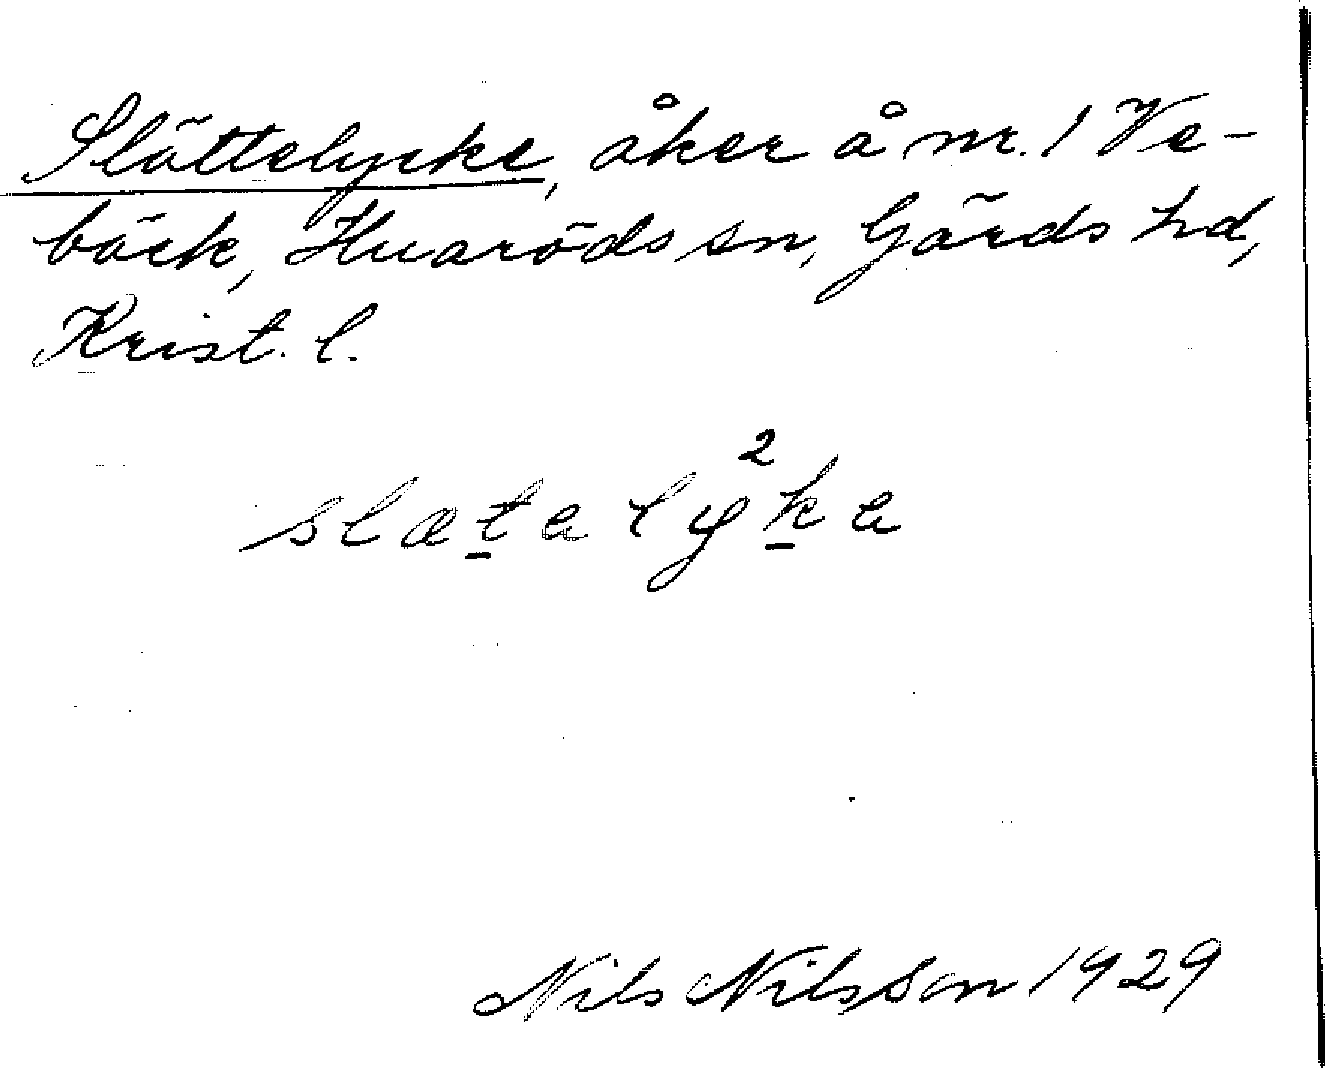 Slättelycke, åker å nr. 1 Ve-
bäck, Huaröds sn, Gärds hd,
Krist. l.
slætaly²ka
Nils Nilsson 1929